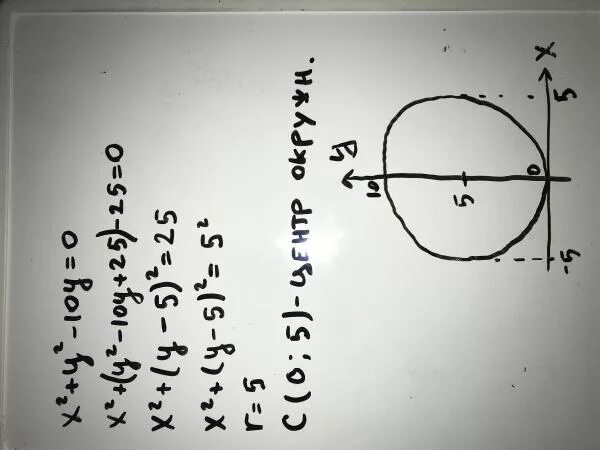 x² + y² - 10y = 0
x² + (y² - 10y + 25) - 25 = 0
x² + (y - 5)² = 25
x² + (y - 5)² = 5²
r = 5
C(0; 5) - ЦЕНТР ОКРУЖН.
y
10
5
0
-5
5
X